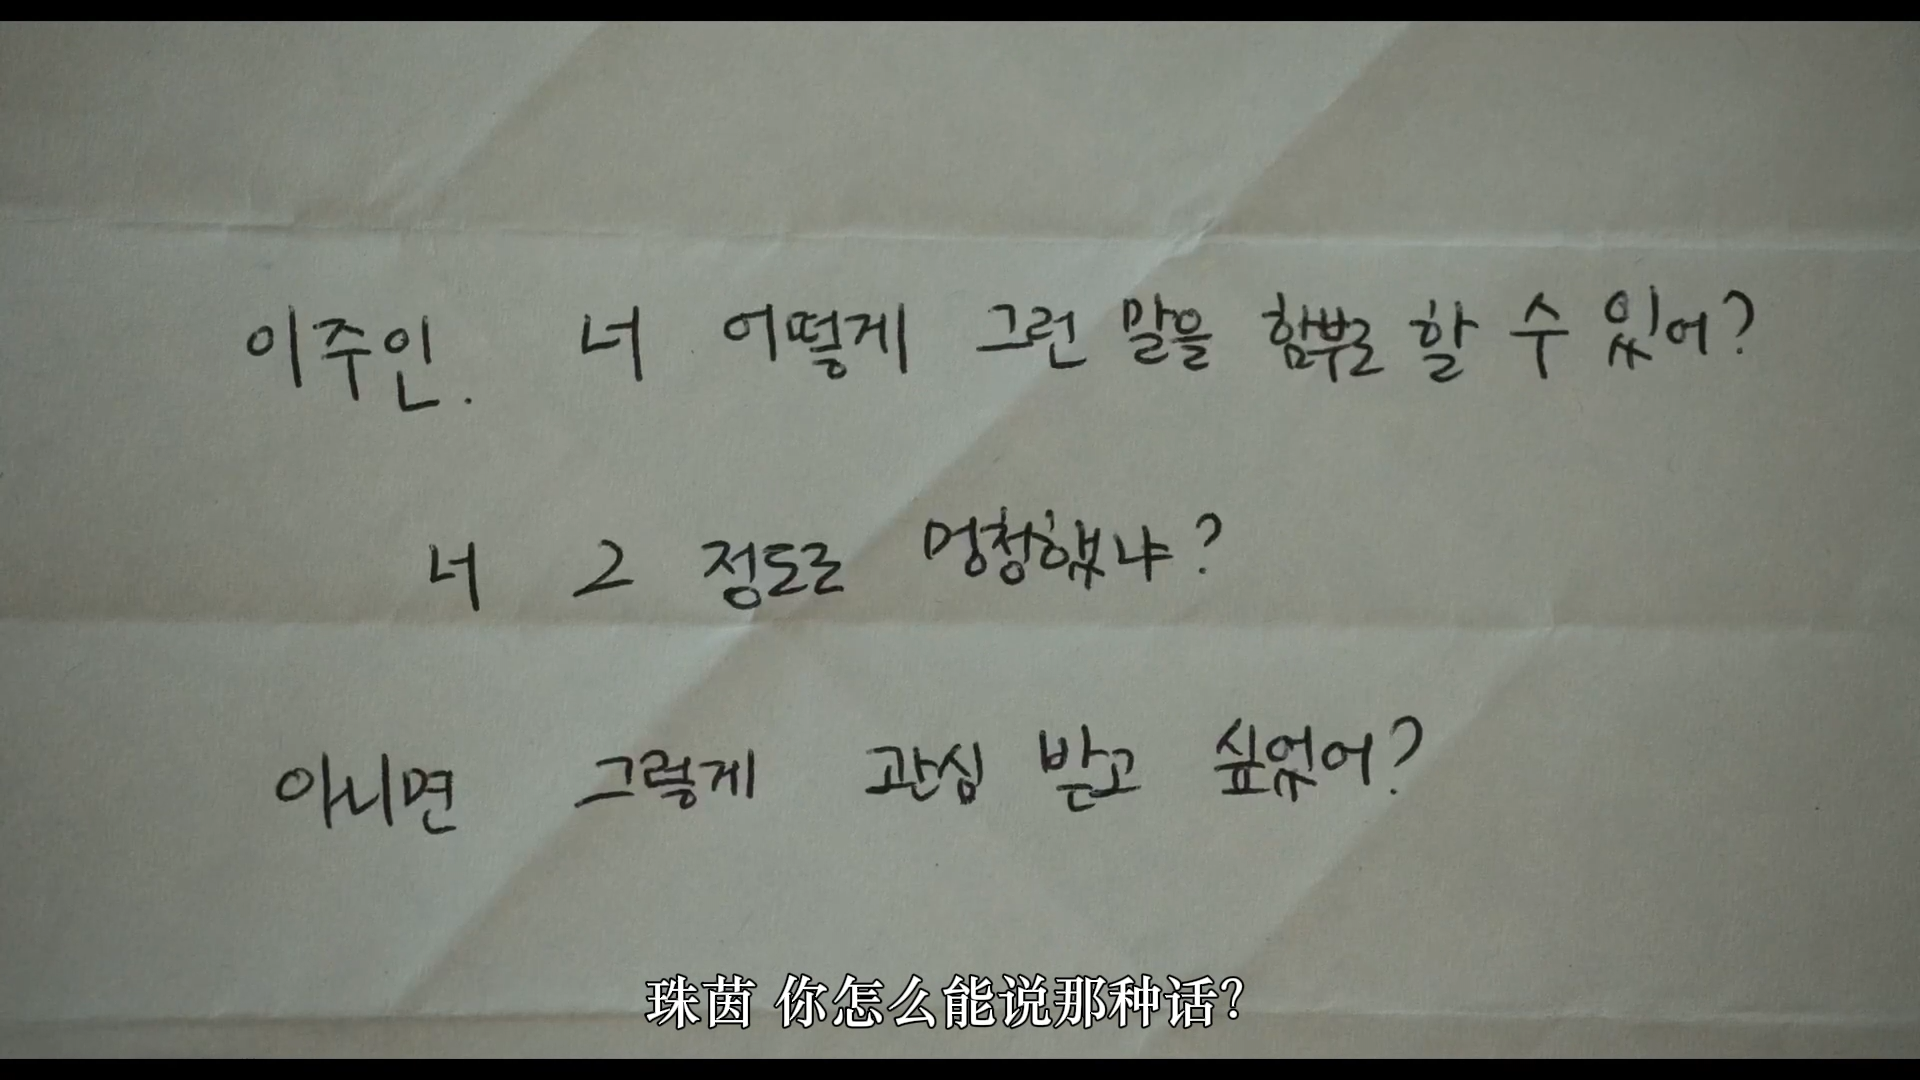 이주인. 너 어떻게 그런 말을 함부로 할 수 있어?
너 그 정도로 멍청했냐?
아니면 그렇게 관심 받고 싶었어?
珠茵 你怎么能说那种话?